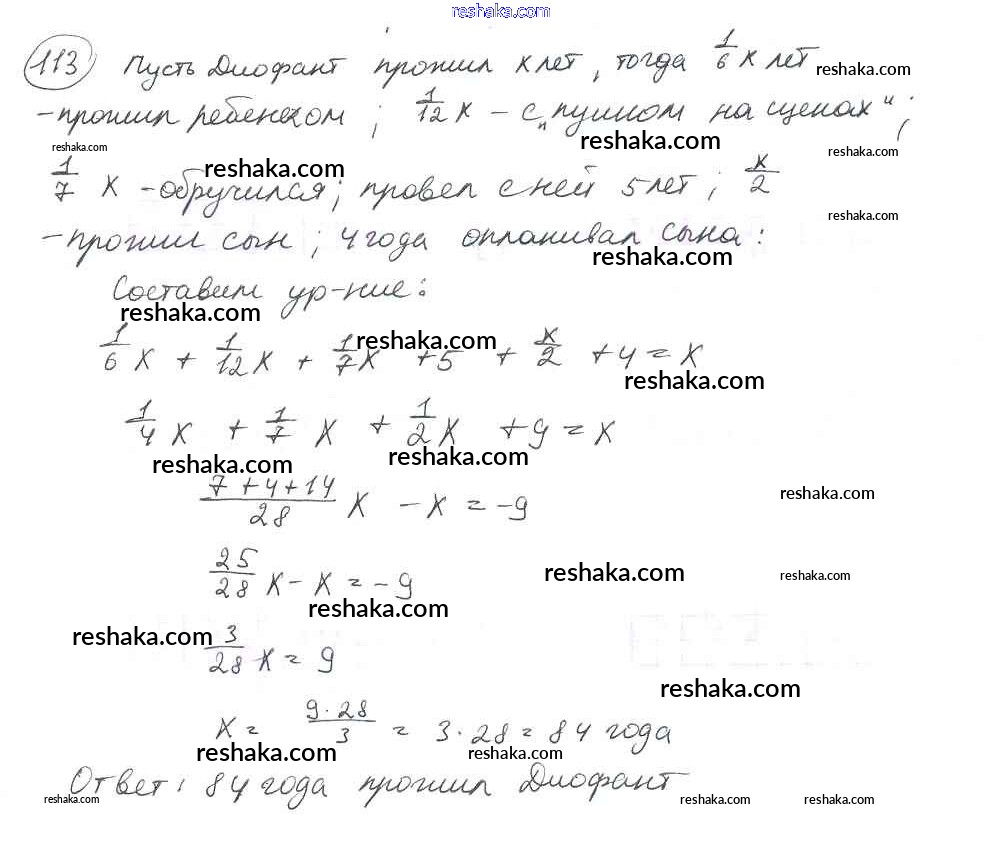 reshaka.com
113 Пусть Диофант прожил x лет, тогда 1/6 x лет
reshaka.com
- прожил ребенком; 1/12 x - с „пушком на щеках";
reshaka.com reshaka.com reshaka.com
reshaka.com
1/7 x - обручился; провел с ней 5 лет; x/2
reshaka.com
- прожил сын; 4 года оплакивал сына:
reshaka.com
Составим ур-ние:
reshaka.com
1/6 x + 1/12 x + 1/7 x + 5 + x/2 + 4 = x
reshaka.com
reshaka.com
1/4 x + 1/7 x + 1/2 x + 9 = x
reshaka.com reshaka.com
(7 + 4 + 14)/28 x - x = -9
reshaka.com
25/28 x - x = -9
reshaka.com reshaka.com
reshaka.com
reshaka.com
3/28 x = 9
reshaka.com
x = (9 · 28)/3 = 3 · 28 = 84 года
reshaka.com reshaka.com
Ответ: 84 года прожил Диофант
reshaka.com reshaka.com reshaka.com